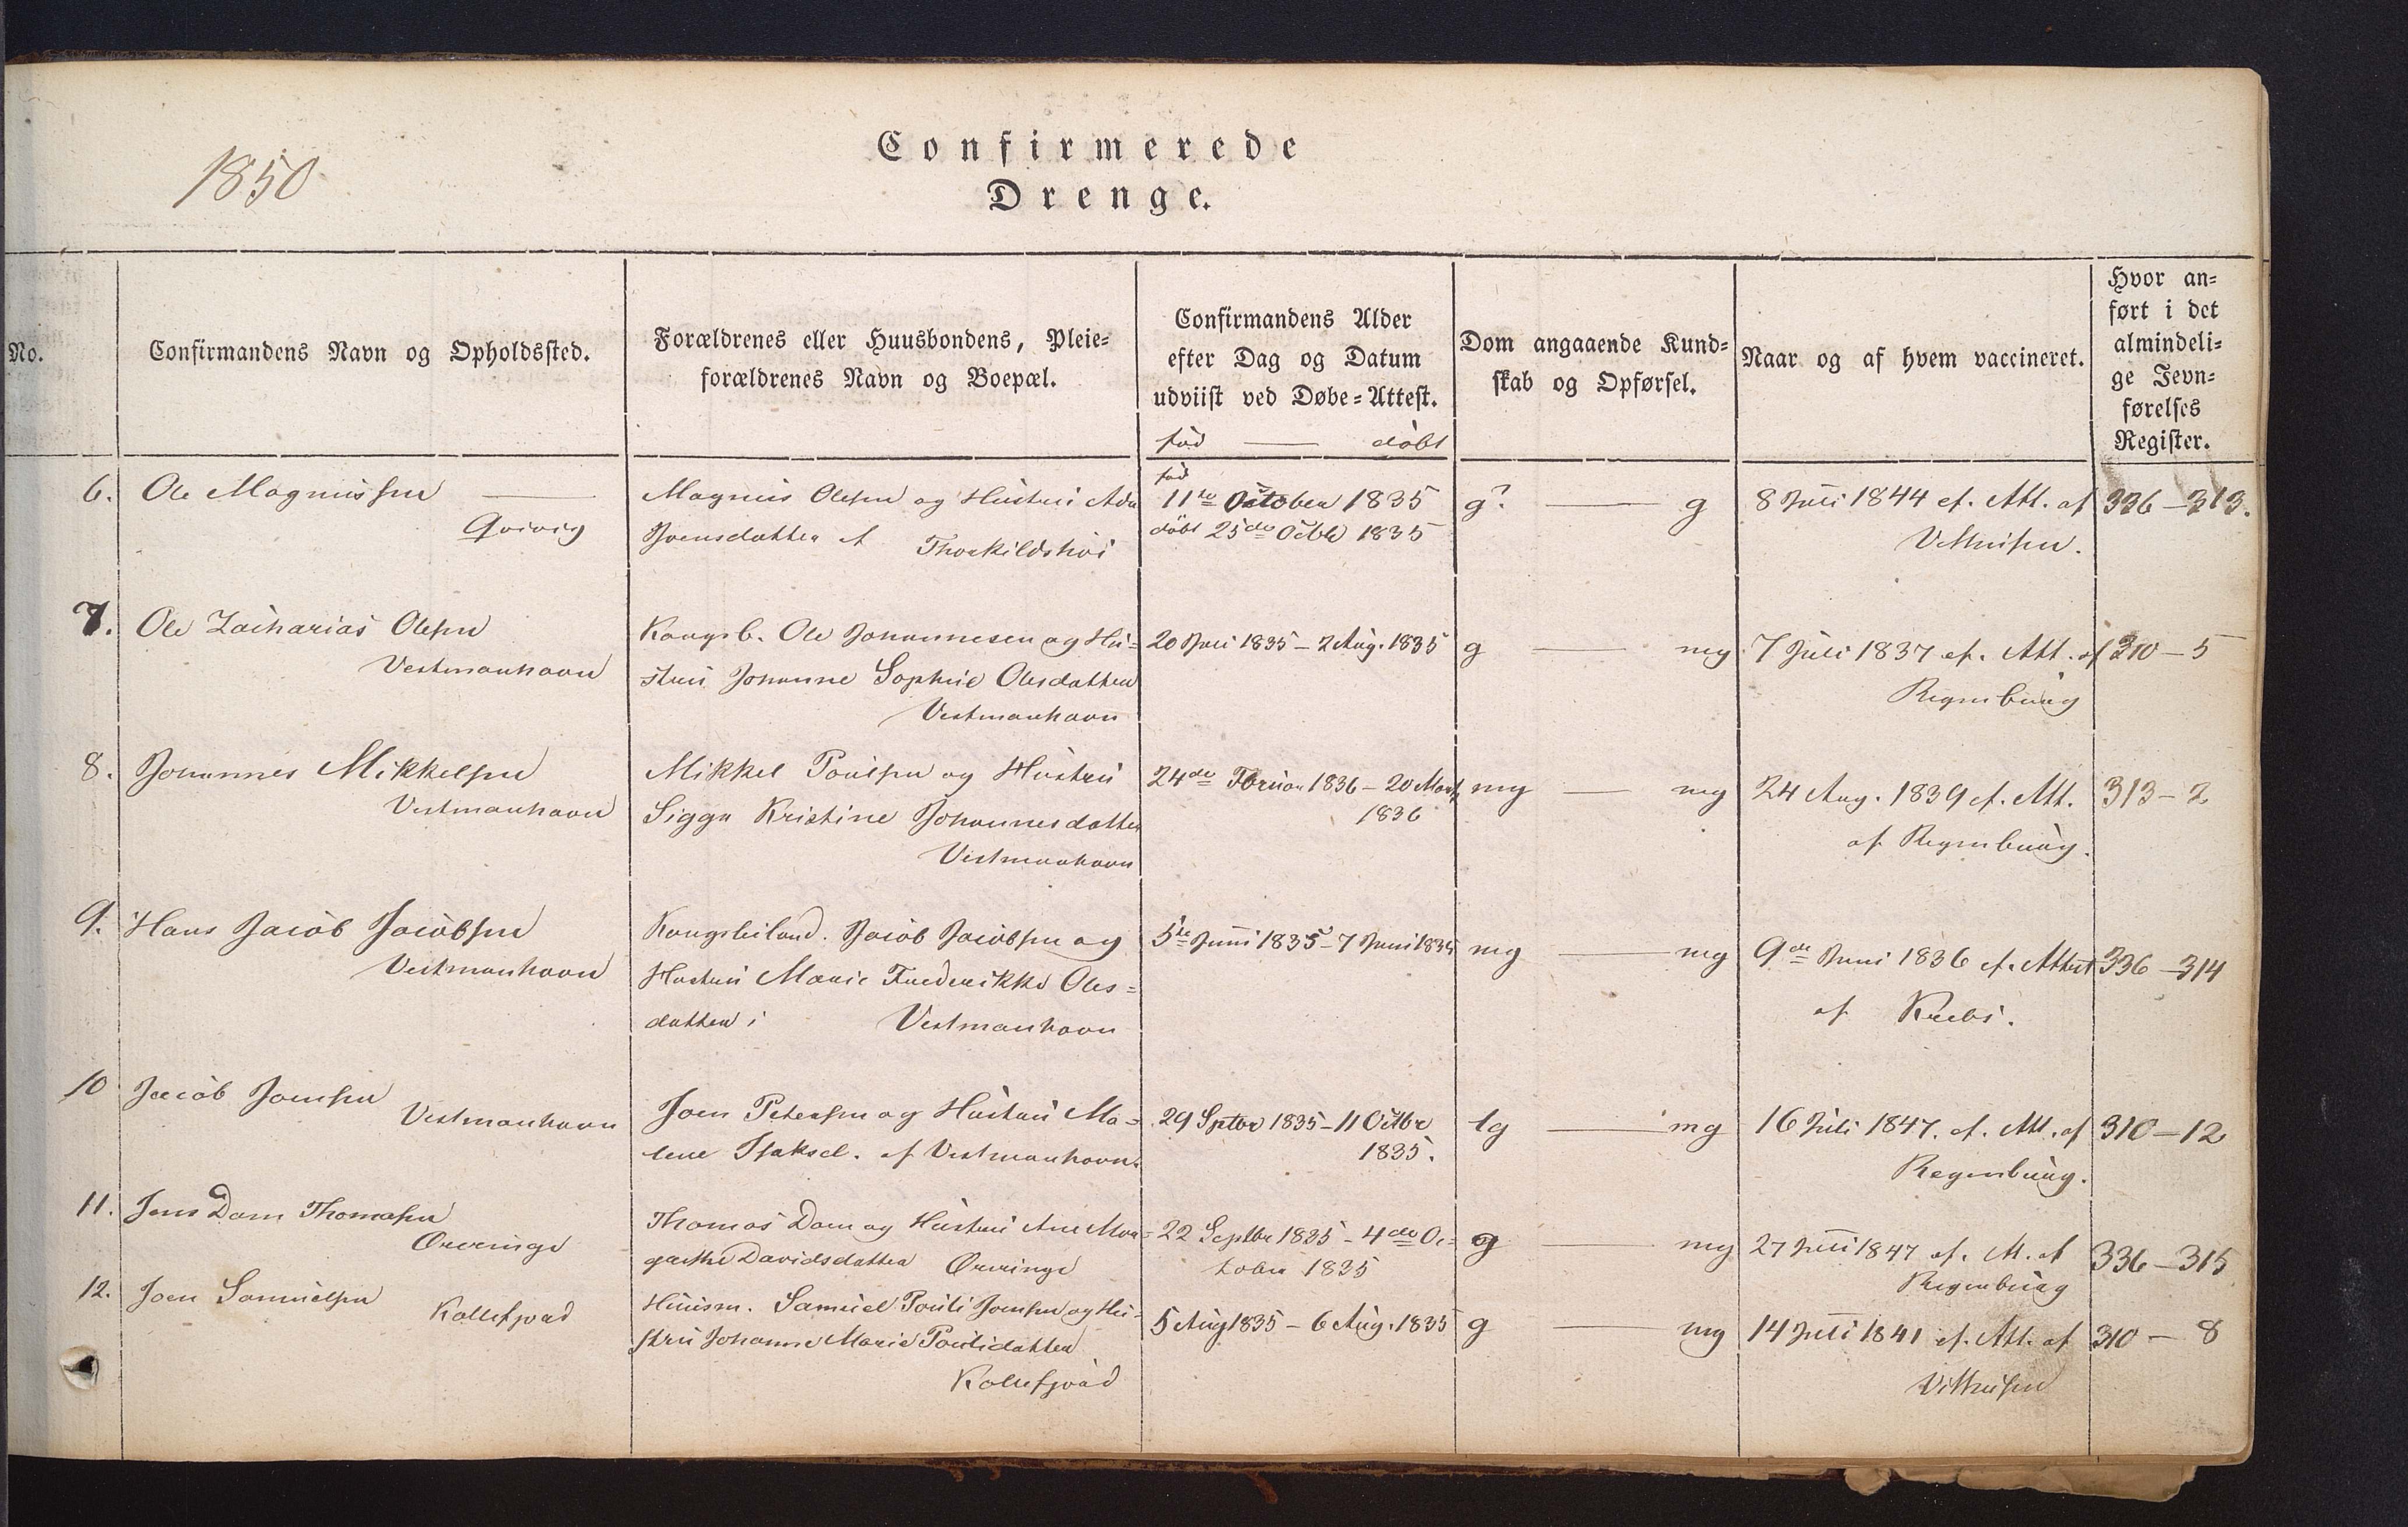 1850
Confirmerede
Drenge.
No.
Confirmandens Navn og Opholdssted.
Forældrenes eller Huusbondens, Pleie=
forældrenes Navn og Boepæl.
Confirmandens Alder
efter Dag og Datum
udviist ved Døbe=Attest.
fød — døbt
Dom angaaende Kund=
skab og Opførsel.
Naar og af hvem vaccineret.
Hvor an=
ført i det
almindeli=
ge Jevn=
førelses
Register.
6. Ole Magnussen —
Qvivig
Magnus Olesen og Hustru Ada
Joensdatter af Thorkildshøi
fød
11te October 1835
døbt 25de Octbr 1835
g? — g
8 Juli 1844 ef. Att. af
336 — 313.
7. Ole Zacharias Olesen
Vestmanhavn
Kongsb. Ole Johannesen og Hu=
stru Johanne Sophie Olesdatter
Vestmanhavn
20 Juli 1835 — 2 Aug. 1835
g — mg
7 Juli 1837 ef. Att. af
Regenburg
310 — 5
8. Johannes Mikkelsen
Vestmanhavn
Mikkel Poulsen og Hustru
Sigga Kristine Johannesdatter
Vestmanhavn
24de Februar 1836 — 20 Marts
1836
mg — mg
24 Aug. 1839 ef. Att.
af Regenburg.
313 — 2
9. Hans Jacob Jacobsen
Vestmanhavn
Jacob Jacobsen og
Hustru Marie Frederikke Oles=
datter i Vestmanhavn
5te Juni 1835 — 7 Juni 1835
mg — mg
9de Juni 1836 ef. Attest
af Krebs.
336 — 314
10 Jacob Joensen
Vestmanhavn
Joen Petersen og Hustru Ma=
lene Isaksd. af Vestmanhavn.
29 Septbr 1835 — 11 Octbr
1835.
tg — mg
16 Juli 1847. ef. Att. af
Regenburg.
310 — 12
11. Jens Dam Thomasen
Øreringe
Thomas Dam og Hustru Ane Mar=
grethe Davidsdatter Øreringe
22 Septbr 1835 — 4de Oc=
tober 1835
g — mg
27 Juli 1847 ef. A. af
Regenburg
336 — 315
12. Joen Samuelsen
Kollefjord
Huusm. Samuel Pouli Joensen og Hu=
stru Johanne Marie Poulsdatter
Kollefjord
5 Aug 1835 — 6 Aug. 1835
g — mg
14 Juli 1841 ef. Att. af
310 — 8